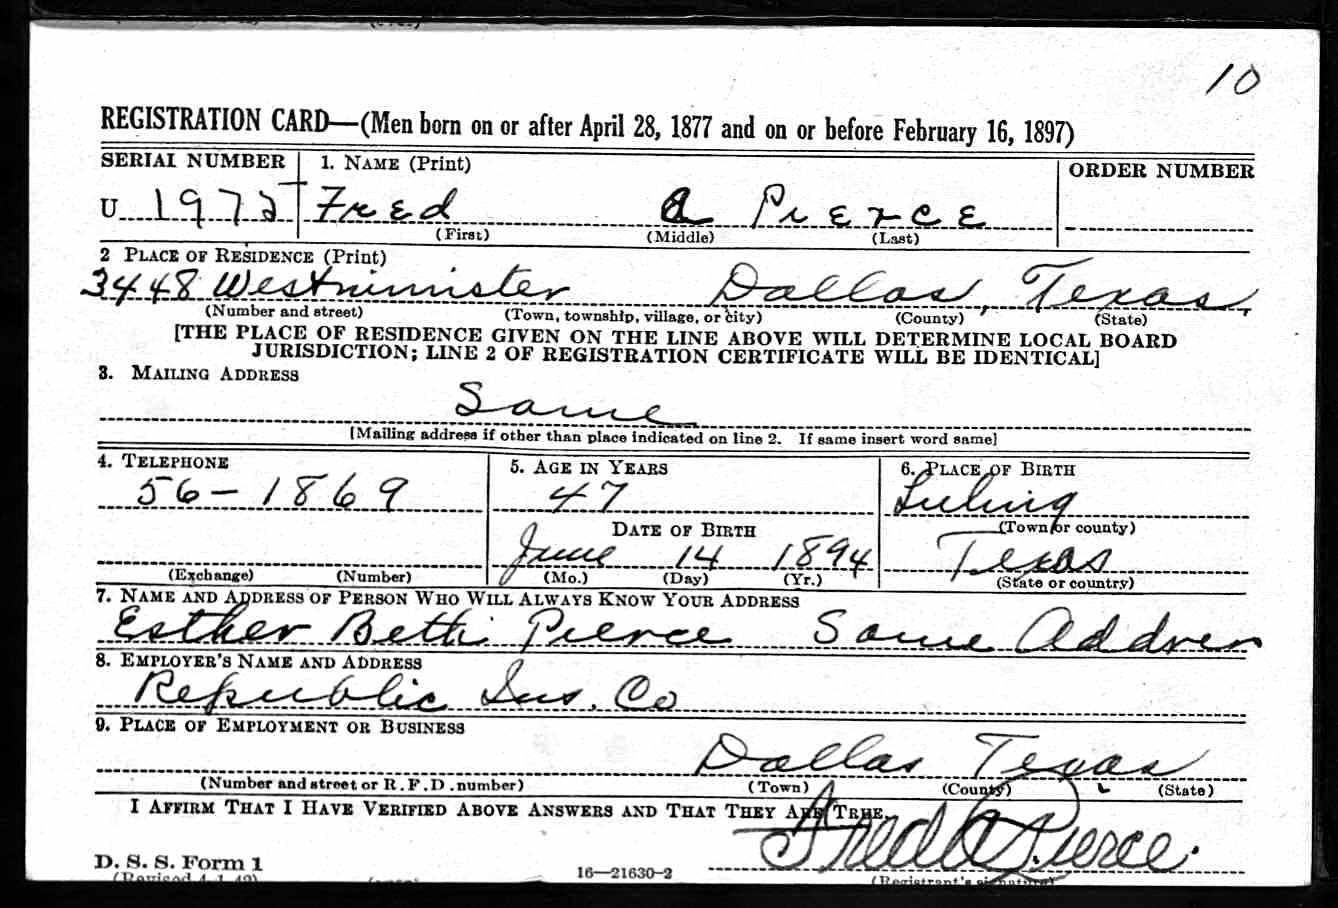 10
REGISTRATION CARD—(Men born on or after April 28, 1877 and on or before February 16, 1897)
SERIAL NUMBER 1. NAME (Print) ORDER NUMBER
U 1975 Fred A Pierce
(First) (Middle) (Last)
2 PLACE OF RESIDENCE (Print)
3448 Westminister Dallas, Texas,
(Number and street) (Town, township, village, or city) (County) (State)
[THE PLACE OF RESIDENCE GIVEN ON THE LINE ABOVE WILL DETERMINE LOCAL BOARD
JURISDICTION; LINE 2 OF REGISTRATION CERTIFICATE WILL BE IDENTICAL]
3. MAILING ADDRESS
Same
[Mailing address if other than place indicated on line 2. If same insert word same]
4. TELEPHONE 5. AGE IN YEARS 6. PLACE OF BIRTH
56-1869 47 Luling
DATE OF BIRTH (Town or county)
June 14 1894 Texas
(Exchange) (Number) (Mo.) (Day) (Yr.) (State or country)
7. NAME AND ADDRESS OF PERSON WHO WILL ALWAYS KNOW YOUR ADDRESS
Esther Beth Pierce Same Address
8. EMPLOYER'S NAME AND ADDRESS
Republic Ins. Co
9. PLACE OF EMPLOYMENT OR BUSINESS
Dallas Texas
(Number and street or R. F. D. number) (Town) (County) (State)
I AFFIRM THAT I HAVE VERIFIED ABOVE ANSWERS AND THAT THEY ARE TRUE.
Fred A Pierce.
D. S. S. Form 1
(Revised 4-1-42) 16—21630-2 (Registrant's signature)